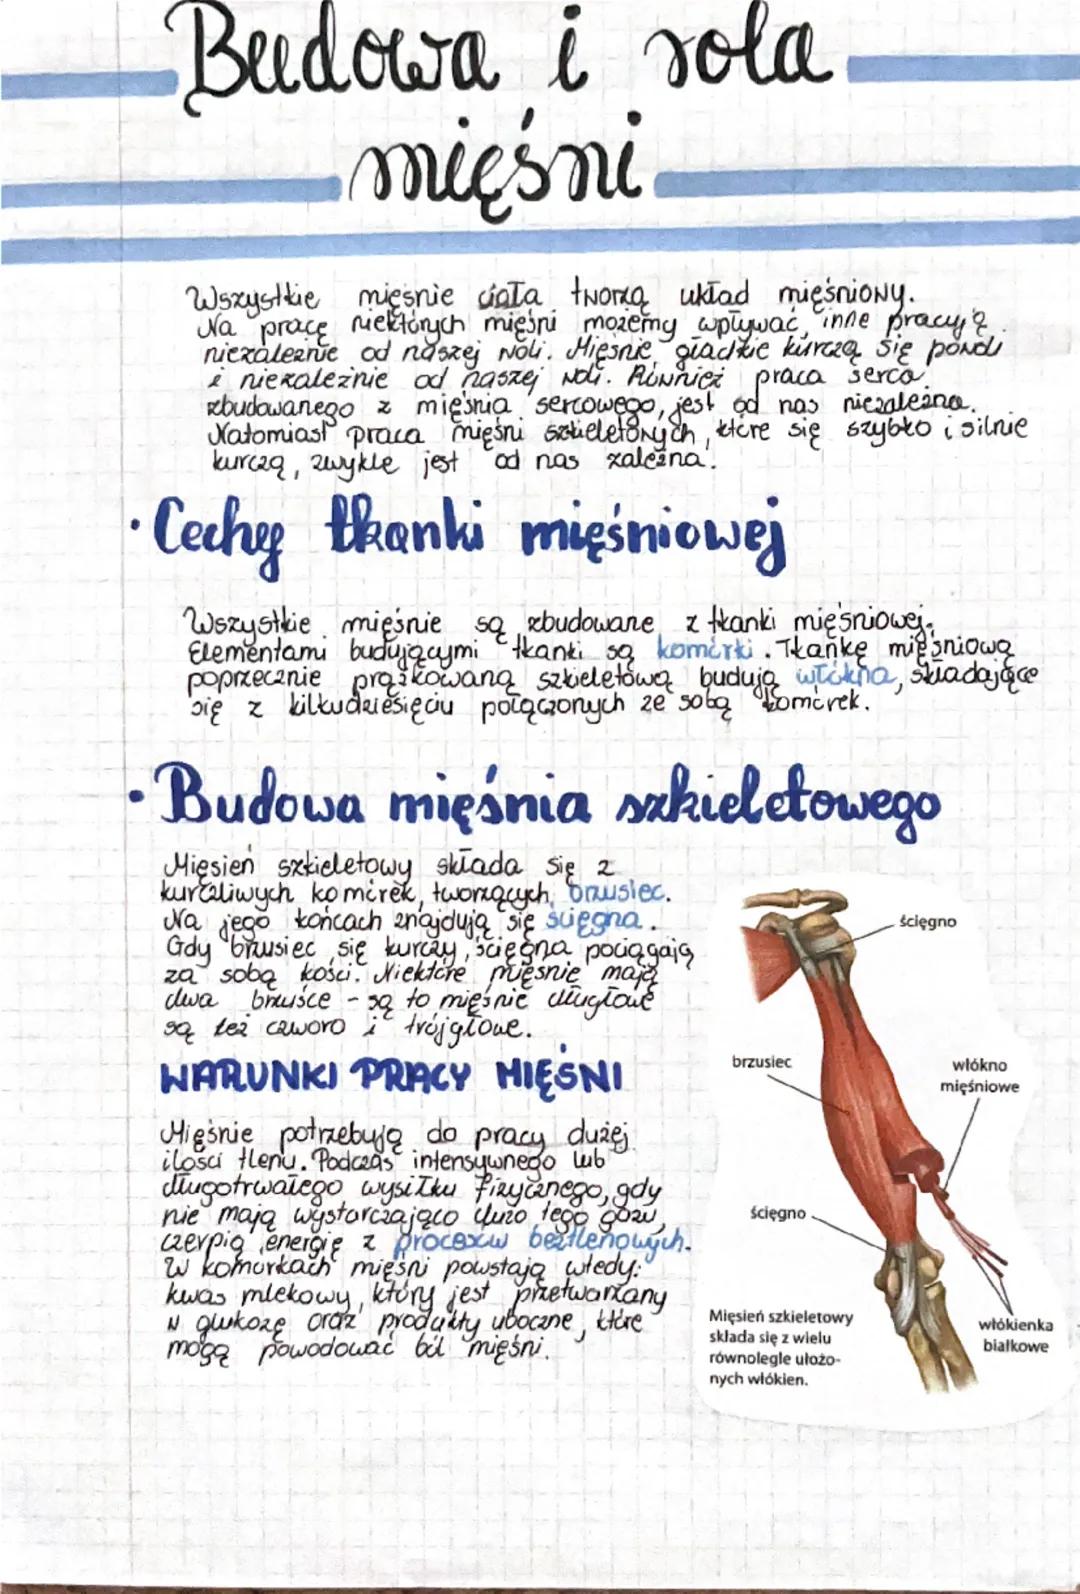 Budowa i rola
mięśni
Wszystkie mięśnie ciała tworzą układ mięśniowy.
Na pracę niektórych mięśni możemy wpływać, inne pracują
niezależnie od naszej woli. Mięśnie gładkie kurczą się powoli
i niezależnie od naszej woli. Również praca serca
zbudowanego z mięśnia sercowego, jest od nas niezależna.
Natomiast praca mięśni szkieletowych, które się szybko i silnie
kurczą, zwykle jest od nas zależna.
· Cechy tkanki mięśniowej
Wszystkie mięśnie są zbudowane z tkanki mięśniowej.
Elementami budującymi tkanki są komórki. Tkankę mięśniową
poprzecznie prążkowaną szkieletową budują włókna, składające
się z kilkudziesięciu połączonych ze sobą komórek.
· Budowa mięśnia szkieletowego
Mięsień szkieletowy składa się z
kurczliwych komórek, tworzących brzusiec.
Na jego końcach znajdują się ścięgna.
Gdy brzusiec się kurczy, ścięgna pociągają
za sobą kości. Niektóre mięśnie mają
dwa brzuśce - są to mięśnie dwugłowe
są też czworo i trójgłowe.
WARUNKI PRACY MIĘŚNI
Mięśnie potrzebują do pracy dużej
ilości tlenu. Podczas intensywnego lub
długotrwałego wysiłku fizycznego, gdy
nie mają wystarczająco dużo tego gazu,
czerpią energię z procesów beztlenowych.
W komórkach mięśni powstają wtedy:
kwas mlekowy, który jest przetwarzany
w glukozę oraz produkty uboczne, które
mogą powodować ból mięśni.
ścięgno
brzusiec
włókno
mięśniowe
ścięgno
włókienka
białkowe
Mięsień szkieletowy
składa się z wielu
równolegle ułożo-
nych włókien.